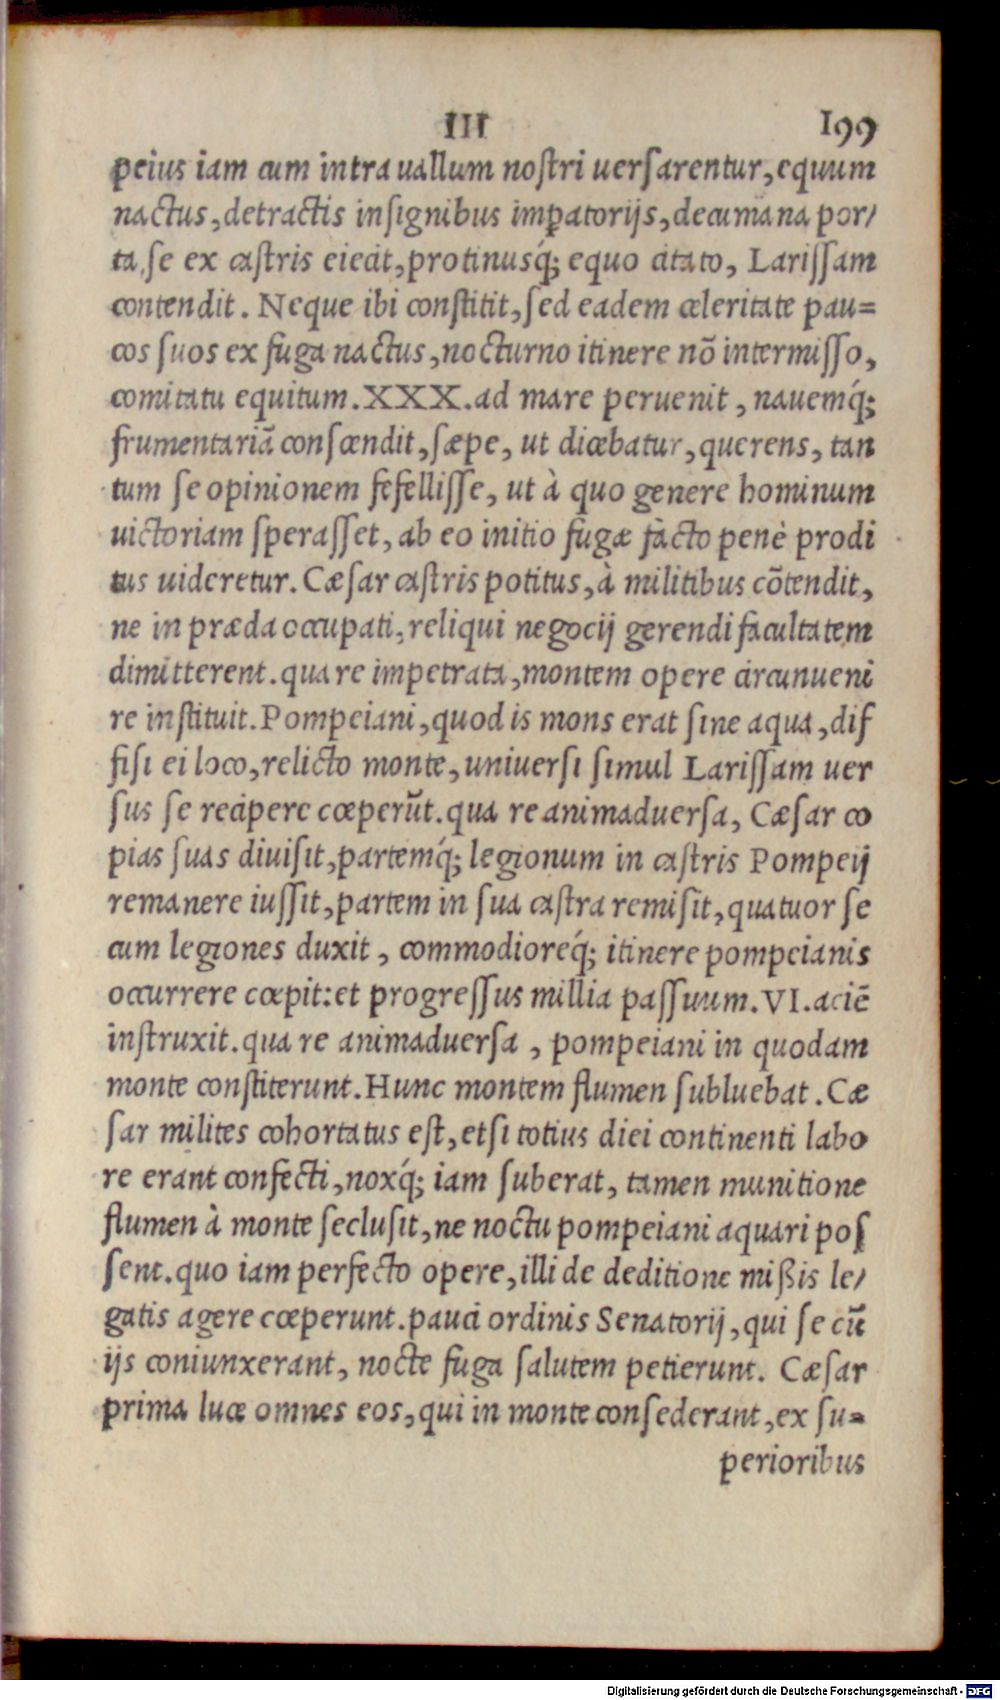 III 199
peius iam cum intra uallum nostri uersarentur, equum
nactus, detractis insignibus imꝑatorijs, decumana por/
ta, se ex castris eiecit, protinusq́; equo citato, Larissam
contendit. Neque ibi constitit, sed eadem celeritate pau=
cos suos ex fuga nactus, nocturno itinere nō intermisso,
comitatu equitum. XXX. ad mare peruenit, nauemq́;
frumentariā conscendit, sæpe, ut dicebatur, querens, tan
tum se opinionem fefellisse, ut à quo genere hominum
uictoriam sperasset, ab eo initio fugæ facto penè prodi
tus uideretur. Cæsar castris potitus, à militibus cōtendit,
ne in præda occupati, reliqui negocij gerendi facultatem
dimitterent. qua re impetrata, montem opere circunueni
re instituit. Pompeiani, quod is mons erat sine aqua, dif
fisi ei loco, relicto monte, uniuersi simul Larissam uer
sus se recipere cœperūt. qua re animaduersa, Cæsar co
pias suas diuisit, partemq́; legionum in castris Pompeij
remanere iussit, partem in sua castra remisit, quatuor se
cum legiones duxit, commodioreq́; itinere pompeianis
occurrere cœpit: et progressus millia passuum. VI. aciē
instruxit. qua re animaduersa, pompeiani in quodam
monte constiterunt. Hunc montem flumen subluebat. Cæ
sar milites cohortatus est, etsi totius diei continenti labo
re erant confecti, noxq́; iam suberat, tamen munitione
flumen à monte seclusit, ne noctu pompeiani aquari pos
sent. quo iam perfecto opere, illi de deditione mißis le/
gatis agere cœperunt. pauci ordinis Senatorij, qui se cū
ijs coniunxerant, nocte fuga salutem petierunt. Cæsar
prima luce omnes eos, qui in monte consederant, ex su=
perioribus
Digitalisierung gefördert durch die Deutsche Forschungsgemeinschaft - DFG